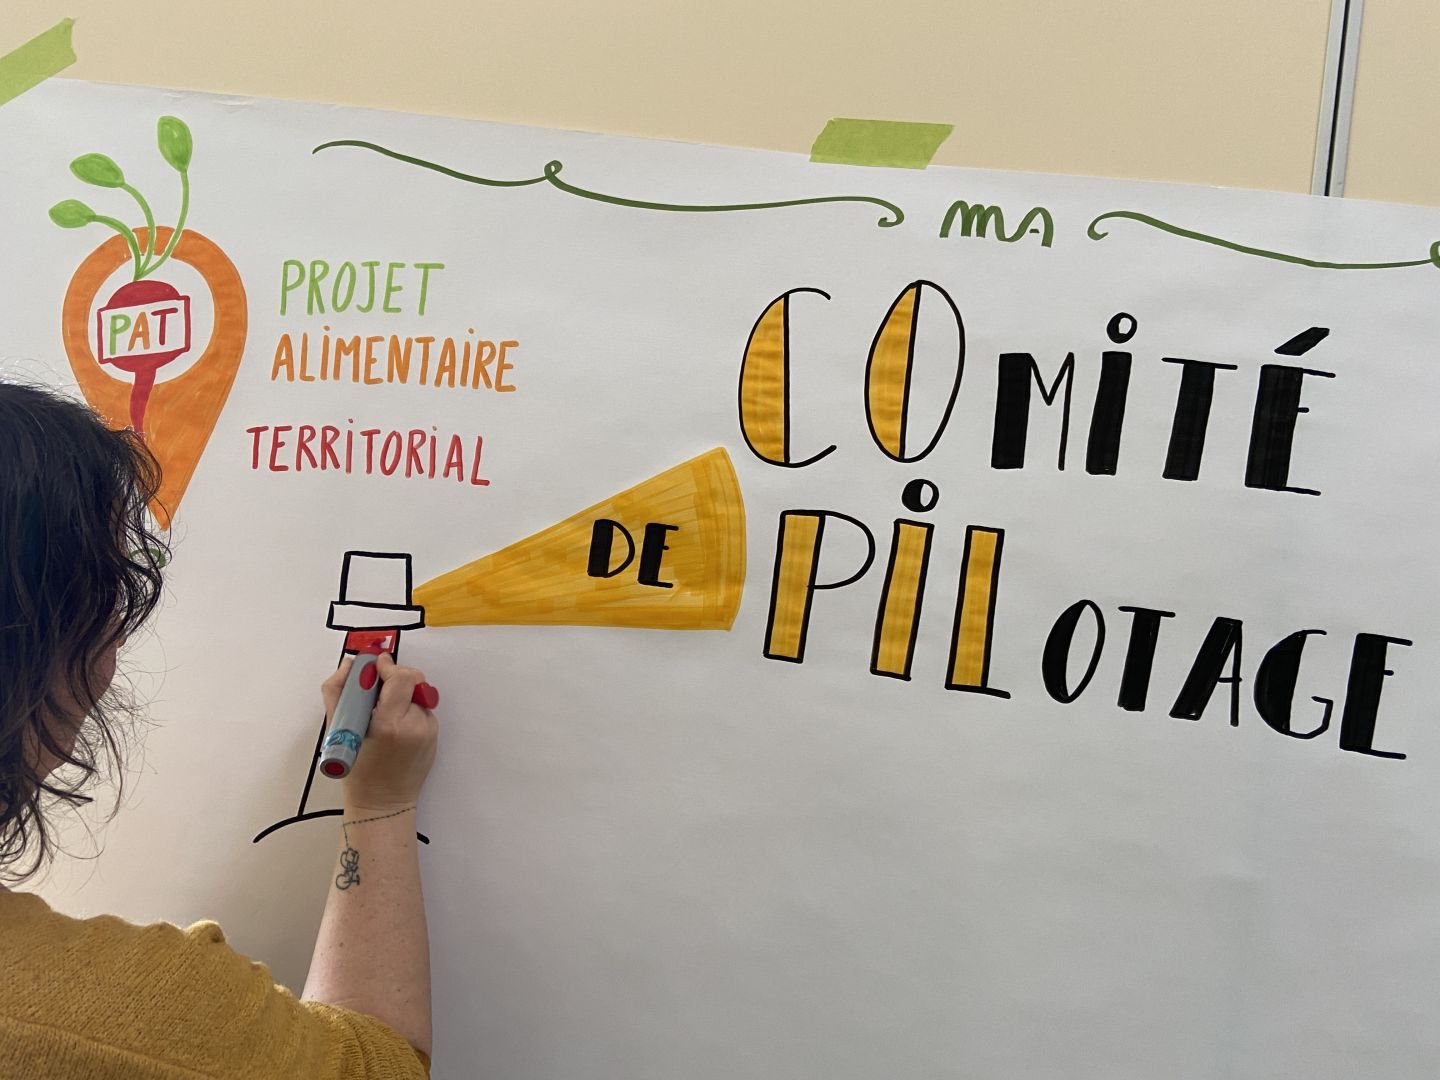 PAT
PROJET
ALIMENTAIRE
TERRITORIAL
MA
COMITÉ
DE PILOTAGE